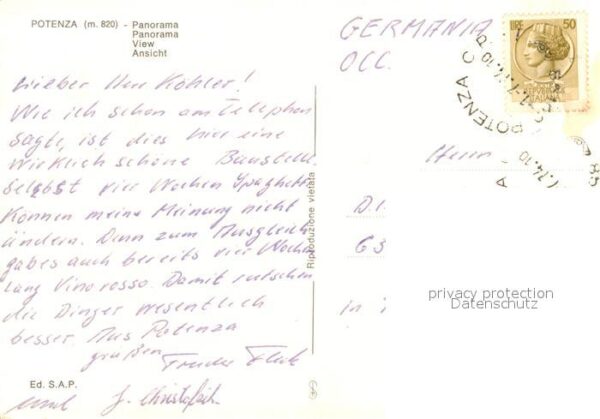 POTENZA (m. 820) - Panorama
Panorama
View
Ansicht
Lieber Herr Köhler!
Wie ich schon am Telephon
sagte, ist dies hier eine
wirklich schöne Baustelle.
Selbst vier Wochen Spaghetti
können meine Meinung nicht
ändern. Denn zum Ausgleich
gabes auch bereits vier Wochen
lang Vino rosso. Damit rutschen
die Dinger wesentlich
besser. Aus Potenza
grüßen
und J.
Ed. S.A.P.
Riproduzione vietata
GERMANIA
OCC.
LIRE 50
REPUBBLICA
ITALIANA
POTENZA
Herrn
D.
63
in
privacy protection
Datenschutz